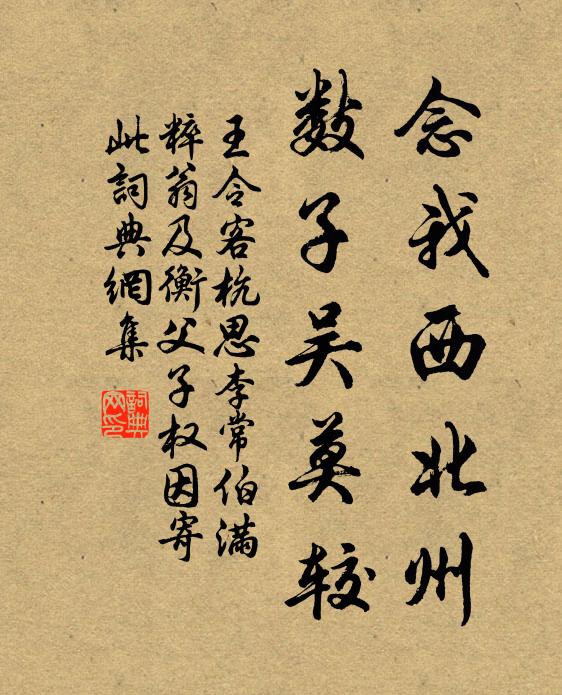 念我西北州
数子吴莫较
王令客杭思李常伯满
粹翁及衡父子权因寄
此詞典網集
詞典
网印